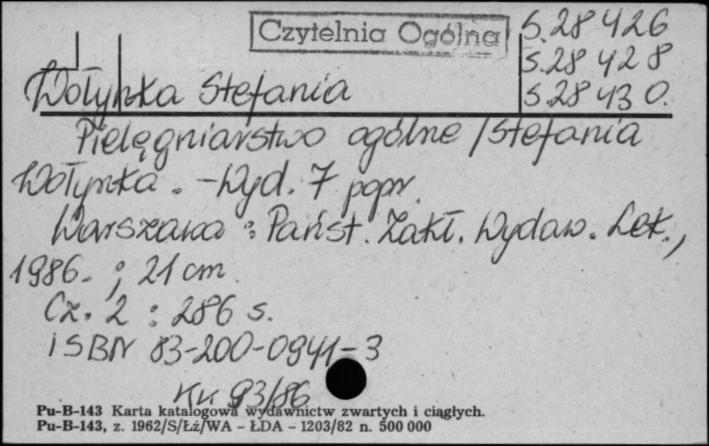 Czytelnia Ogólna
S.28 426
S.28 428
S.28 430.
Wołynka Stefania
Pielęgniarstwo ogólne / Stefania
Wołynka. - Wyd. 7 popr.
Warszawa : Państ. Zakł. Wydaw. Lek.,
1986. ; 21 cm.
Cz. 2 : 286 s.
ISBN 83-200-0941-3
Kr. 93/86
Pu-B-143 Karta katalogowa wydawnictw zwartych i ciągłych.
Pu-B-143, z. 1962/S/Łź/WA - ŁDA - 1203/82 n. 500 000